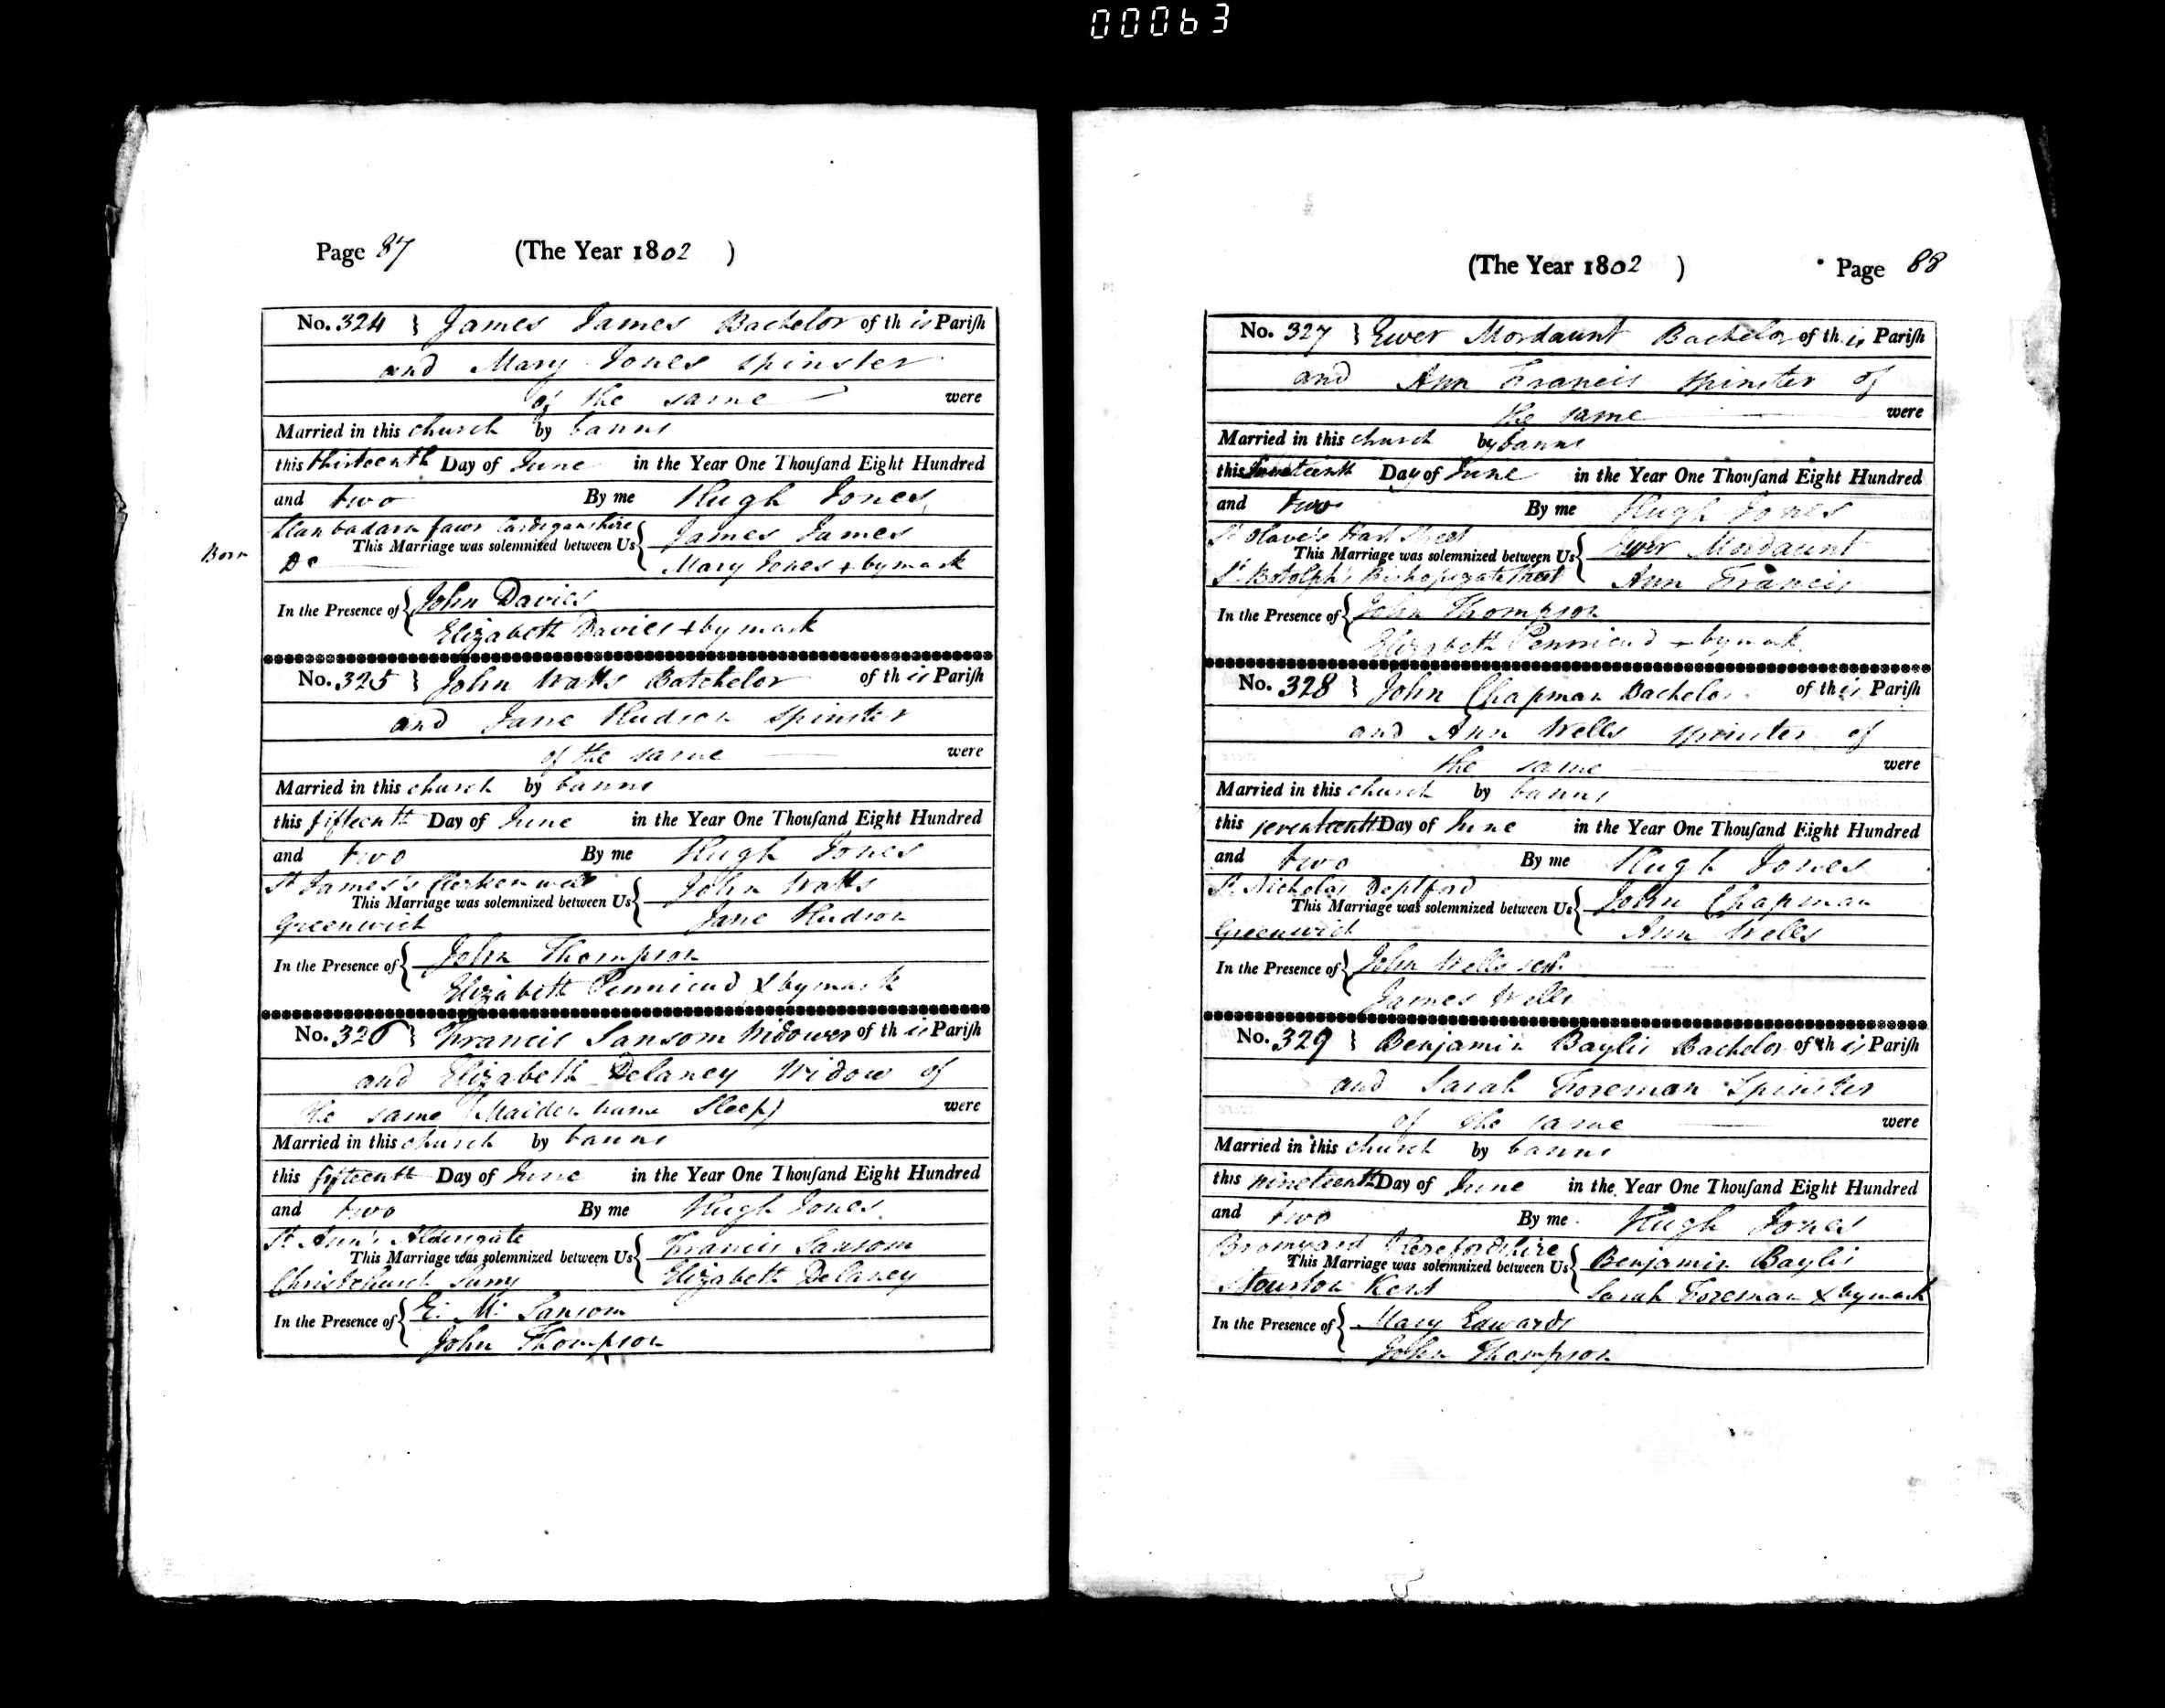 00063
Page 87 (The Year 1802 )
No. 324 } James James Bachelor of this Pariſh
and Mary Jones spinster
of the same were
Married in this church by banns
this thirteenth Day of June in the Year One Thouſand Eight Hundred
and two By me Hugh Jones
Llanbadarn fawr Cardiganshire { James James
Born This Marriage was solemnized between Us
Do Mary Jones + by mark
In the Presence of { John Davies
Elizabeth Davies + by mark
No. 325 } John Watts Batchelor of this Pariſh
and Jane Hudson spinster
of the same were
Married in this church by banns
this fifteenth Day of June in the Year One Thouſand Eight Hundred
and two By me Hugh Jones
St James's Clerkenwell { John Watts
This Marriage was solemnized between Us
Greenwich Jane Hudson
In the Presence of { John Thompson
Elizabeth Penniend X by mark
No. 326 } Francis Sansom Widower of this Pariſh
and Elizabeth Delaney Widow of
the same (Maiden name Sleep) were
Married in this church by banns
this fifteenth Day of June in the Year One Thouſand Eight Hundred
and two By me Hugh Jones
St Ann's Aldersgate { Francis Sansom
This Marriage was solemnized between Us
Christchurch Surry Elizabeth Delaney
In the Presence of { E. M. Sansom
John Thompson
(The Year 1802 ) Page 88
No. 327 } Ewer Mordaunt Bachelor of this Pariſh
and Ann Francis spinster of
the same were
Married in this church by banns
this Day of June in the Year One Thouſand Eight Hundred
and two By me Hugh Jones
St Olave's Hart Street { Ewer Mordaunt
This Marriage was solemnized between Us
St Botolph's Bishopsgate Street Ann Francis
In the Presence of { John Thompson
Elizabeth Penniend + by mark
No. 328 } John Chapman Bachelor of this Pariſh
and Ann Wells spinster of
the same were
Married in this church by banns
this seventeenth Day of June in the Year One Thouſand Eight Hundred
and two By me Hugh Jones
St Nicholas Deptford { John Chapman
This Marriage was solemnized between Us
Greenwich Ann Wells
In the Presence of { John Wells senr.
James Wells
No. 329 } Benjamin Baylis Bachelor of this Pariſh
and Sarah Foreman Spinster
of the same were
Married in this church by banns
this nineteenth Day of June in the Year One Thouſand Eight Hundred
and two By me Hugh Jones
Bromyard Herefordshire { Benjamin Baylis
This Marriage was solemnized between Us
Stourton Kent Sarah Foreman X by mark
In the Presence of { Mary Edwards
John Thompson